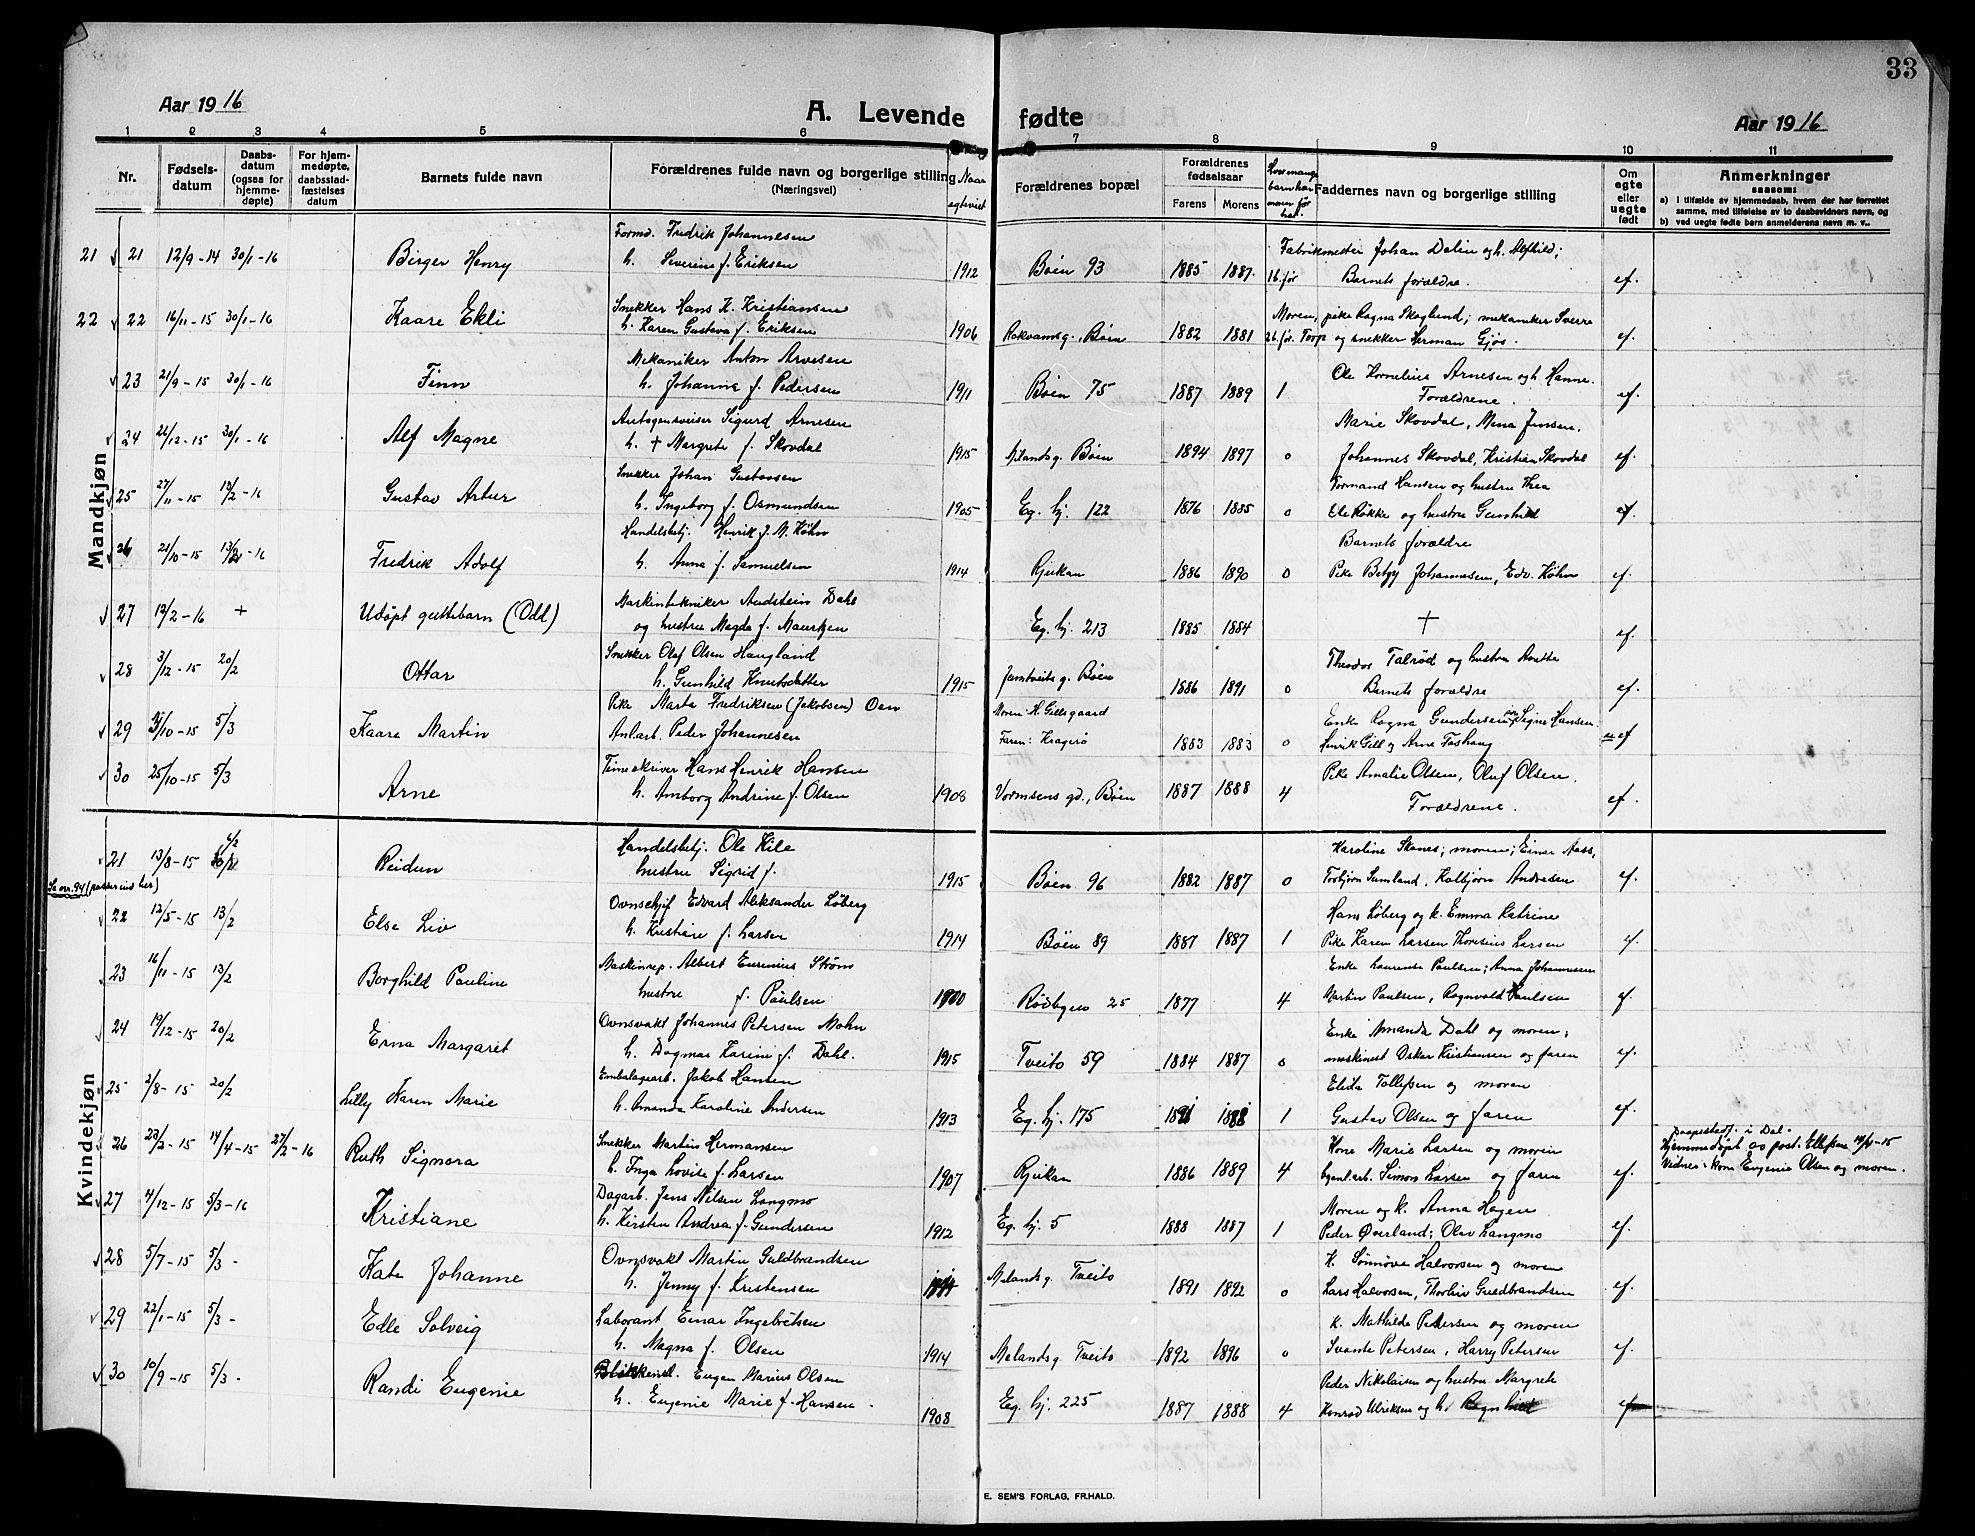 33
Aar 1916
A. Levende fødte
Aar 1916
1 2 3 4 5 6 7 8 9 10 11
Nr.
Fødselsdatum
Daabsdatum (ogsaa for hjemmedøpte)
For hjemmedøpte, daabsstadfæstelses datum
Barnets fulde navn
Forældrenes fulde navn og borgerlige stilling (Næringsvei)
Naar egteviet
Forældrenes bopæl
Forældrenes fødselsaar
Farens Morens
Hvor mange barn har moren før hat.
Faddernes navn og borgerlige stilling
Om egte eller uegte født
Anmerkninger
saasom:
a) i tilfælde av hjemmedaab, hvem der har forrettet samme, med tilføielse av to daabsvidners navn, og
b) ved uegte fødte barn anmelderens navn m. v..
Mandkjøn
21 21 12/9-14 30/1-16 Birger Henry Formd. Fredrik Johannesen
h. Severine f. Eriksen 1912 Bøen 93 1885 1887. 16. før Fabrikmester Johan Dalin og h. Alfhild;
Barnets forældre. ef.
22 22 16/11-15 30/1-16 Kaare Ekli Snekker Hans K. Kristiansen
h. Karen Gustava f. Eriksen 1906 Rakvamsg., Bøen 1882 1881 26. før. Moren, pike Ragna Skoglund; mekaniker Sverre
Torp og snekker Herman Gjøs. ef.
23 21/9-15 30/1-16 Finn Mekaniker Anton Arvesen
h. Johanna f. Pedersen 1911 Bøen 75 1887 1889 1 Ole Kornelius Arnesen og h. Hanne.
Forældrene. ef.
24 26/12-15 30/1-16 Alf Magne Autogensveiser Sigurd Arnesen
h. + Margrete f. Skovdal 1915 Mælandsg. Bøen 1894 1897 0 Marie Skovdal, Mena Jensen,
Johannes Skovdal, Kristian Skovdal ef.
25 27/11-15 13/2-16 Gustav Artur Snekker Johan Gustavsen
h. Ingeborg f. Osmundsen 1905 Eg. hj. 122 1876 1885 0 Formand Hansen og hustru Thea
Ole Røkke og hustru Gunhild ef.
26 21/10-15 13/2-16 Fredrik Adolf Handelsbetj. Henrik J. M. Køhn
h. Anna f. Samuelsen 1914 Rjukan 1886 1890 0 Barnets forældre
Pike Betzy Johannesen, Edv. Køhn ef.
27 12/2-16 + Udøpt guttebarn (Odd) Maskintekniker Audstein Dahl
og hustru Magda f. Mauritzen Eg. hj. 213 1885 1884 + ef.
28 3/12-15 20/2 Ottar Snekker Olaf Olsen Haugland
h. Gunhild Knutsdatter 1915 Jamtveits g. Bøen 1886 1891 0 Theodor Talrød og hustru Anetta
Barnets forældre ef.
29 /10-15 5/3 Kaare Martin Pike Marta Fredriksen (Jakobsen) Oen
Anl.arb. Peder Johannesen Moren: H. Gillsgaard
Faren: Kragerø 1883 1883 0 Enke Ragna Gundersen, Signe Hansen.
Henrik Gill og Arne Foshaug uef
30 25/10-15 5/3 Arne Timeskriver Hans Henrik Hansen
h. Amborg Andrine f. Olsen 1908 Vormsens gd., Bøen 1887 1888 4 Pike Amalie Olsen, Oluf Olsen.
Forældrene. ef.
Kvindekjøn
21 13/8-15 6/2 Reidun Handelsbetj. Ole Kile
hustru Sigrid f. 1915 Bøen 96 1882 1887 0 Karoline Skanes; moren; Einar Aass,
Torbjørn Sumland, Kolbjørn Andresen ef.
Se nr. 94 (passer ind her)
22 12/5-15 13/2 Else Liv Ovnschef Edvard Aleksander Løberg
h. Kristiane f. Larsen 1914 Bøen 89 1887 1887 1 Hans Løberg og k. Emma Katrine
Pike Karen Larsen Thoresius Larsen ef.
23 16/11-15 13/2 Borghild Pauline Maskinrep. Albert Eurenius Strøm
hustru f. Paulsen 1900 Rødbyen 25 1877 4 Enke Laurense Paulsen; Anna Johannesen
Martin Paulsen, Ragnvald Paulsen ef.
24 19/12-15 20/2 Erna Margaret Ovnsvakt Johannes Petersen Mohn
h. Dagmar Karine f. Dahl. 1915 Tveito 59 1884 1887 0 Enke Amanda Dahl og moren;
maskinist Oskar Kristiansen og faren ef.
25 2/8-15 20/2 Lilly Karen Marie Embalagearb. Jakob Hansen
h. Amanda Karoline Andersen 1913 Eg. hj. 175 1 Elida Tollefsen og moren
Gustav Olsen og faren ef.
26 23/2-15 14/4-15 27/2-16 Ruth Signora Snekker Martin Hermansen
h. Inga Lovise f. Larsen 1907 Rjukan 1886 1889 4 Kone Marie Larsen og moren
Simon Larsen og faren ef. Daapsstadf. i Dal.
Hjemmedøpt av post. Ellefsen 14/4-15
Vidner: kone Eugenie Olsen og moren.
27 4/12-15 5/3-16 Kristiane Dagarb. Jens Nilsen Langmo
h. Kirsten Andrea f. Gundersen 1912 Eg. hj. 5 1888 1887 1 Moren og k. Anna Hagen
Peder Øverland; Olav Langmo ef.
28 5/7-15 5/3- Kate Johanne Ovnsvakt Martin Guldbrandsen
h. Jenny f. Kristensen Mælandsg. Tveito 1891 1892 0 K. Sønnøve Halvorsen og moren
Lars Halvorsen, Thorleiv Guldbrandsen ef.
29 22/1-15 5/3- Edle Solveig Laborant Einar Ingebretsen
h. Magna f. Olsen 1914 Mælandsg. Tveito 1892 1896 0 K. Mathilde Petersen og moren
Svante Petersen, Harry Petersen ef.
30 10/9-15 5/3- Randi Eugenie Blikkensl. Eugen Marius Olsen
h. Eugenie Marie f. Hansen. 1908 Eg. hj. 225 1887 1888 4 Peder Nikolaisen og hustru Margrete
Konrad Ulriksen og h. Ragnhild ef
E. SEM'S FORLAG, FR.HALD.